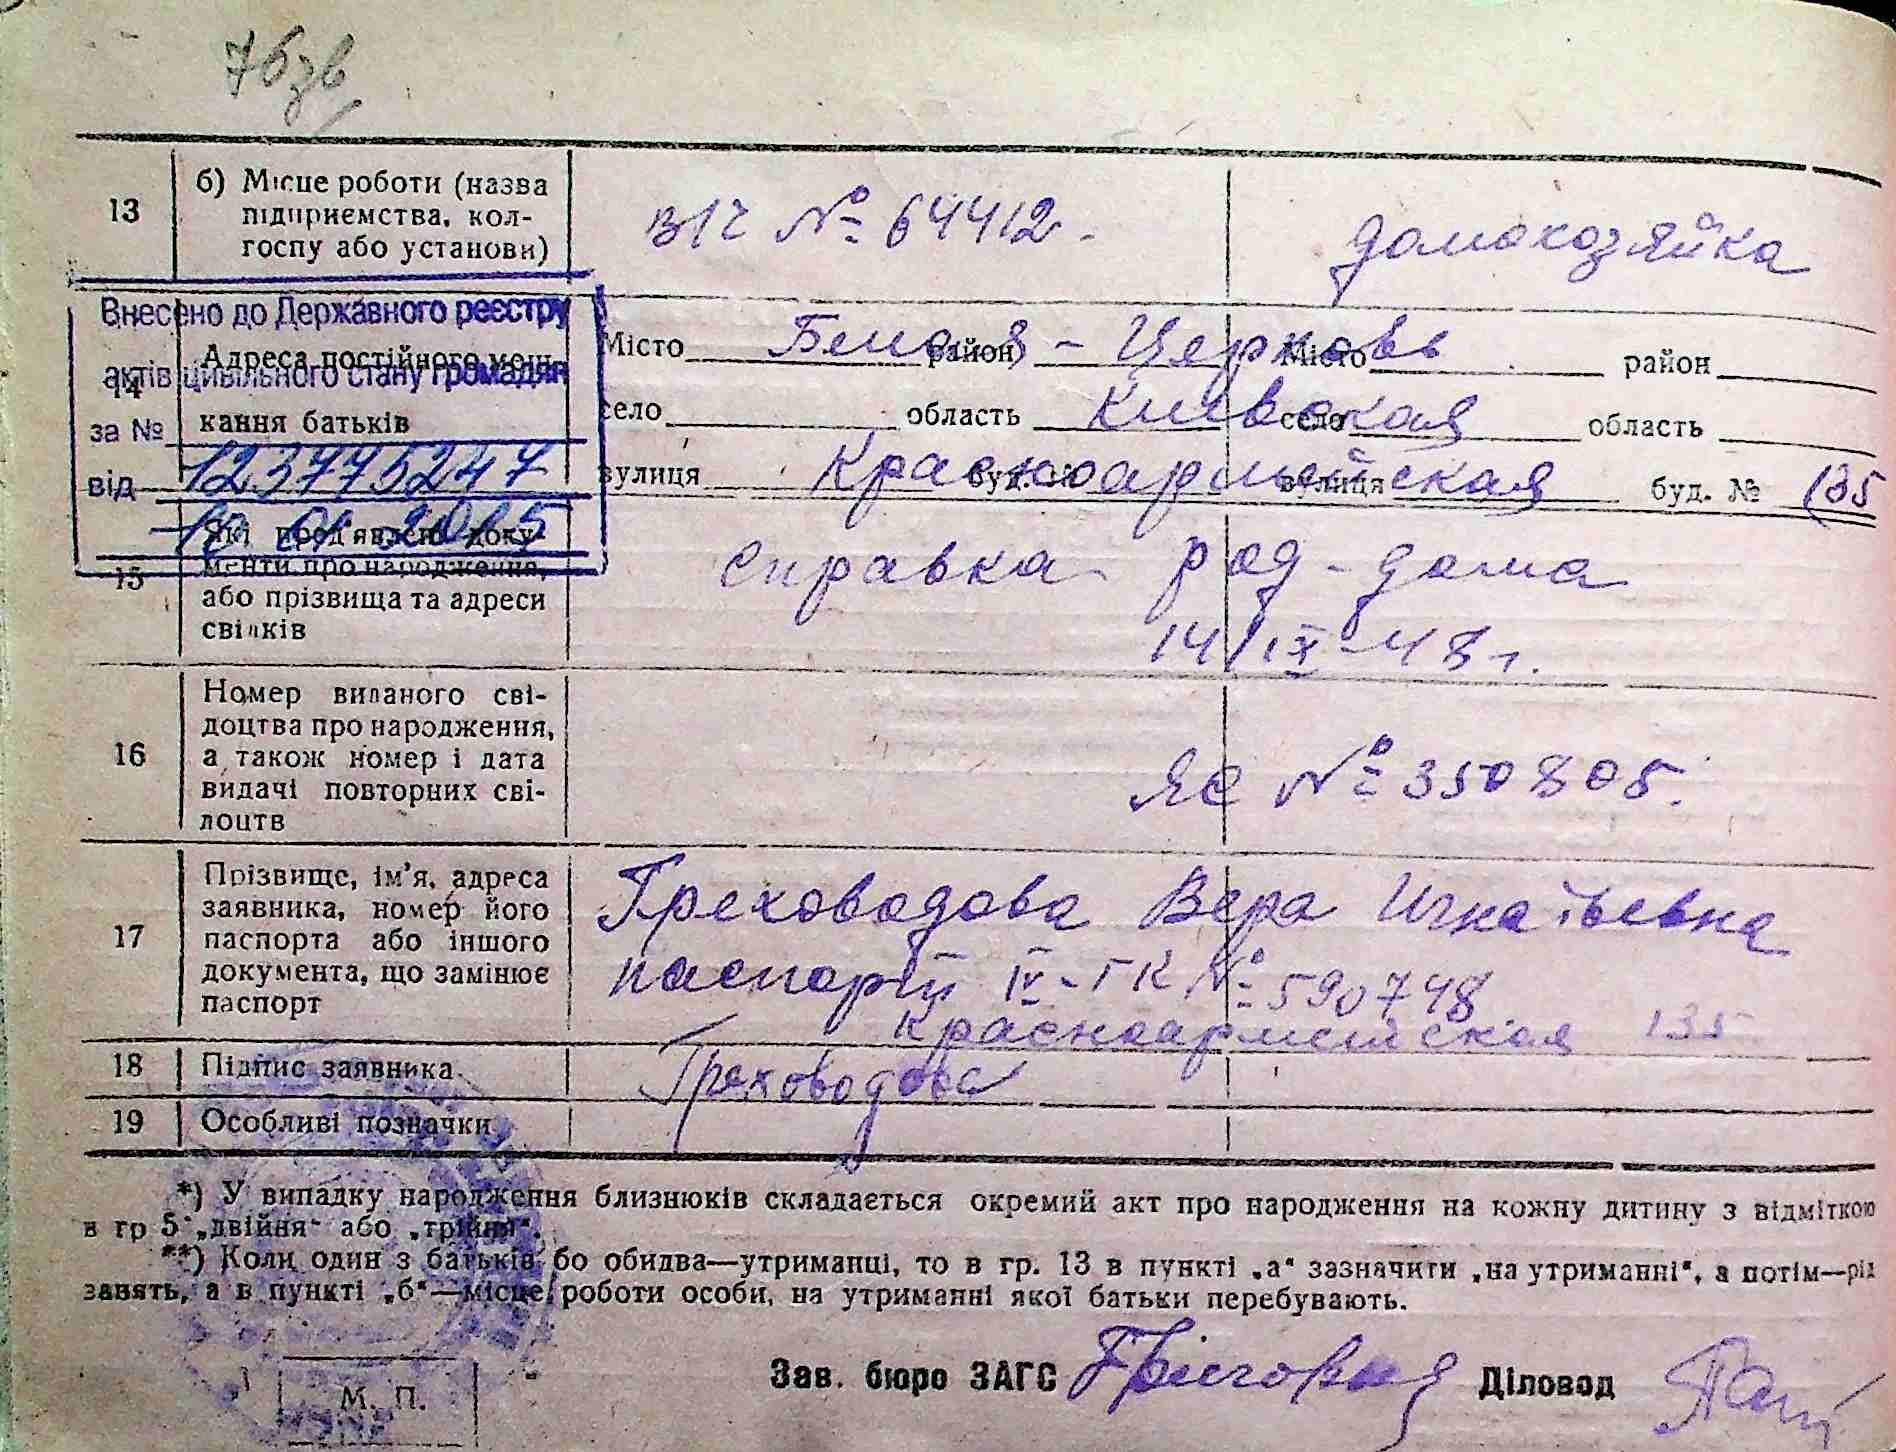 76зв
13
б) Місце роботи (назва
підприємства, кол-
госпу або установи)
в/ч № 64412.
домохозяйка
Внесено до Державного реєстру
актів цивільного стану громадян
за №
123775247
від
10 01 2015
14
Адреса постійного меш-
кання батьків
Місто Белая - Церковь район Місто район
село область Киевская село область
вулиця Красноармейская буд. № вулиця буд. № 135
15
Які пред'явлені доку-
менти про народження,
або прізвища та адреси
свідків
справка род-дома
14/IX-48 г.
16
Номер виданого сві-
доцтва про народження,
а також номер і дата
видачі повторних сві-
доцтв
ЯЄ № 350805.
17
Прізвище, ім'я, адреса
заявника, номер його
паспорта або іншого
документа, що замінює
паспорт
Греховодова Вера Игнатьевна
паспорт IV-ГК № 590748
Красноармейская 135
18
Підпис заявника
Греховодова
19
Особливі позначки
*) У випадку народження близнюків складається окремий акт про народження на кожну дитину з відміткою
в гр 5 „двійня“ або „трійня“.
**) Коли один з батьків бо обидва—утриманці, то в гр. 13 в пункті „а“ зазначити „на утриманні“, а потім—рід
занять, а в пункті „б“—місце роботи особи, на утриманні якої батьки перебувають.
Зав. бюро ЗАГС
Діловод
М. П.